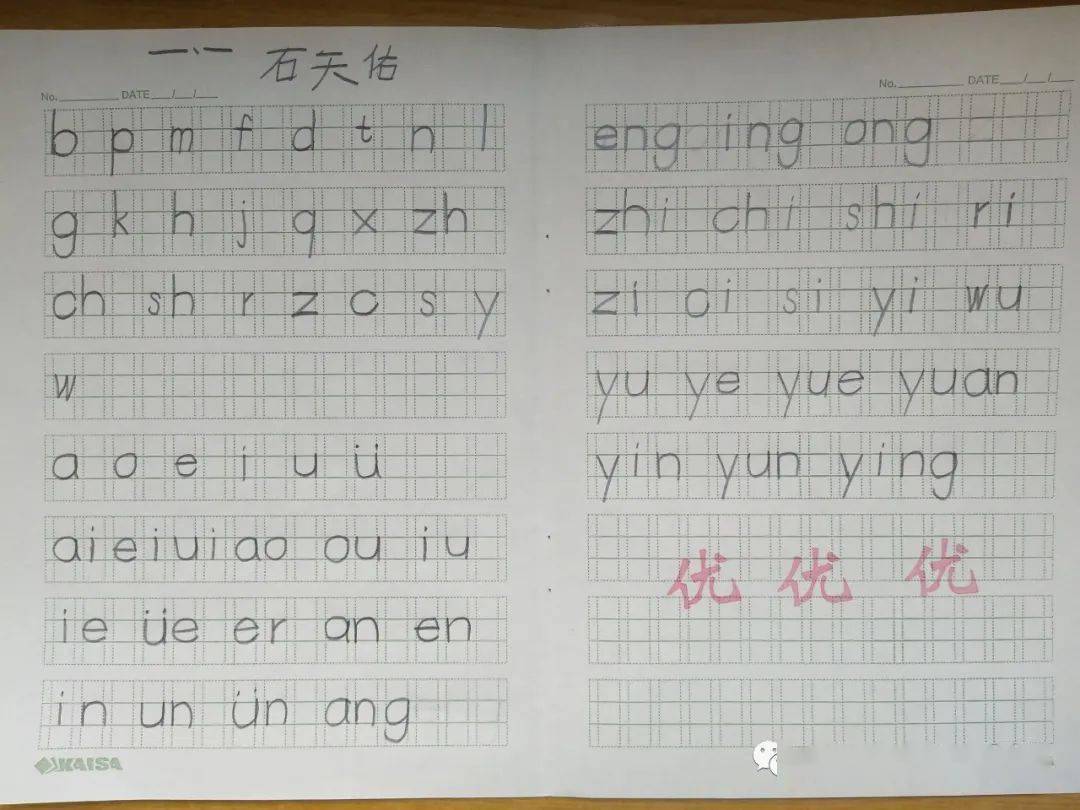 一、一 石矢佑
No. DATE / /
b p m f d t n l
g k h j q x zh
ch sh r z c s y
w
a o e i u ü
ai ei ui ao ou iu
ie üe er an en
in un ün ang
KAISA
No. DATE / /
eng ing ong
zhi chi shi ri
zi ci si yi wu
yu ye yue yuan
yin yun ying
优 优 优